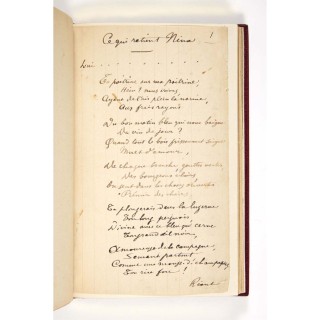 Ce qui retient Nina
Lui . . . . . . . . . . . .
Ta poitrine sur ma poitrine,
Hein ? nous irions,
Ayant de l'air plein la narine,
Aux frais rayons
Du bon matin bleu qui vous baigne
Du vin de jour ?
Quand tout le bois frissonnant saigne
Muet d'amour,
De chaque branche, gouttes vertes,
Des bourgeons clairs,
On sent dans les choses ouvertes
Frémir des chairs ;
Tu plongerais dans la luzerne
Ton long peignoir,
Divine avec ce bleu qui cerne
Ton grand œil noir,
Amoureuse de la campagne,
Semant partout,
Comme une mousse de champagne,
Ton rire fou !
Riant